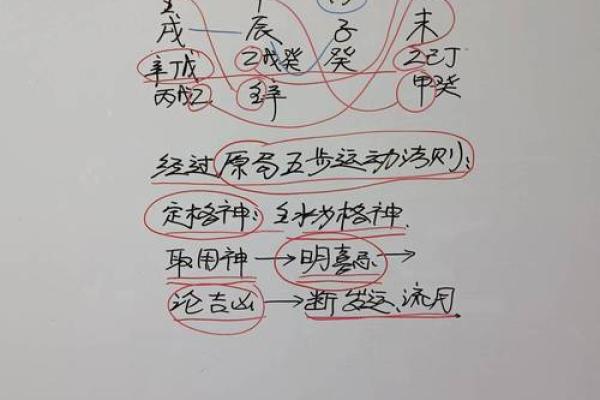 戌 辰 子 未
辛戊丁 乙戊癸 癸 乙己丁
丙戊乙 壬辛 甲癸
经过原局五步运动法则:
定格神: 壬水为格神.
取用神→明喜忌→
论吉凶→断发运、流月.